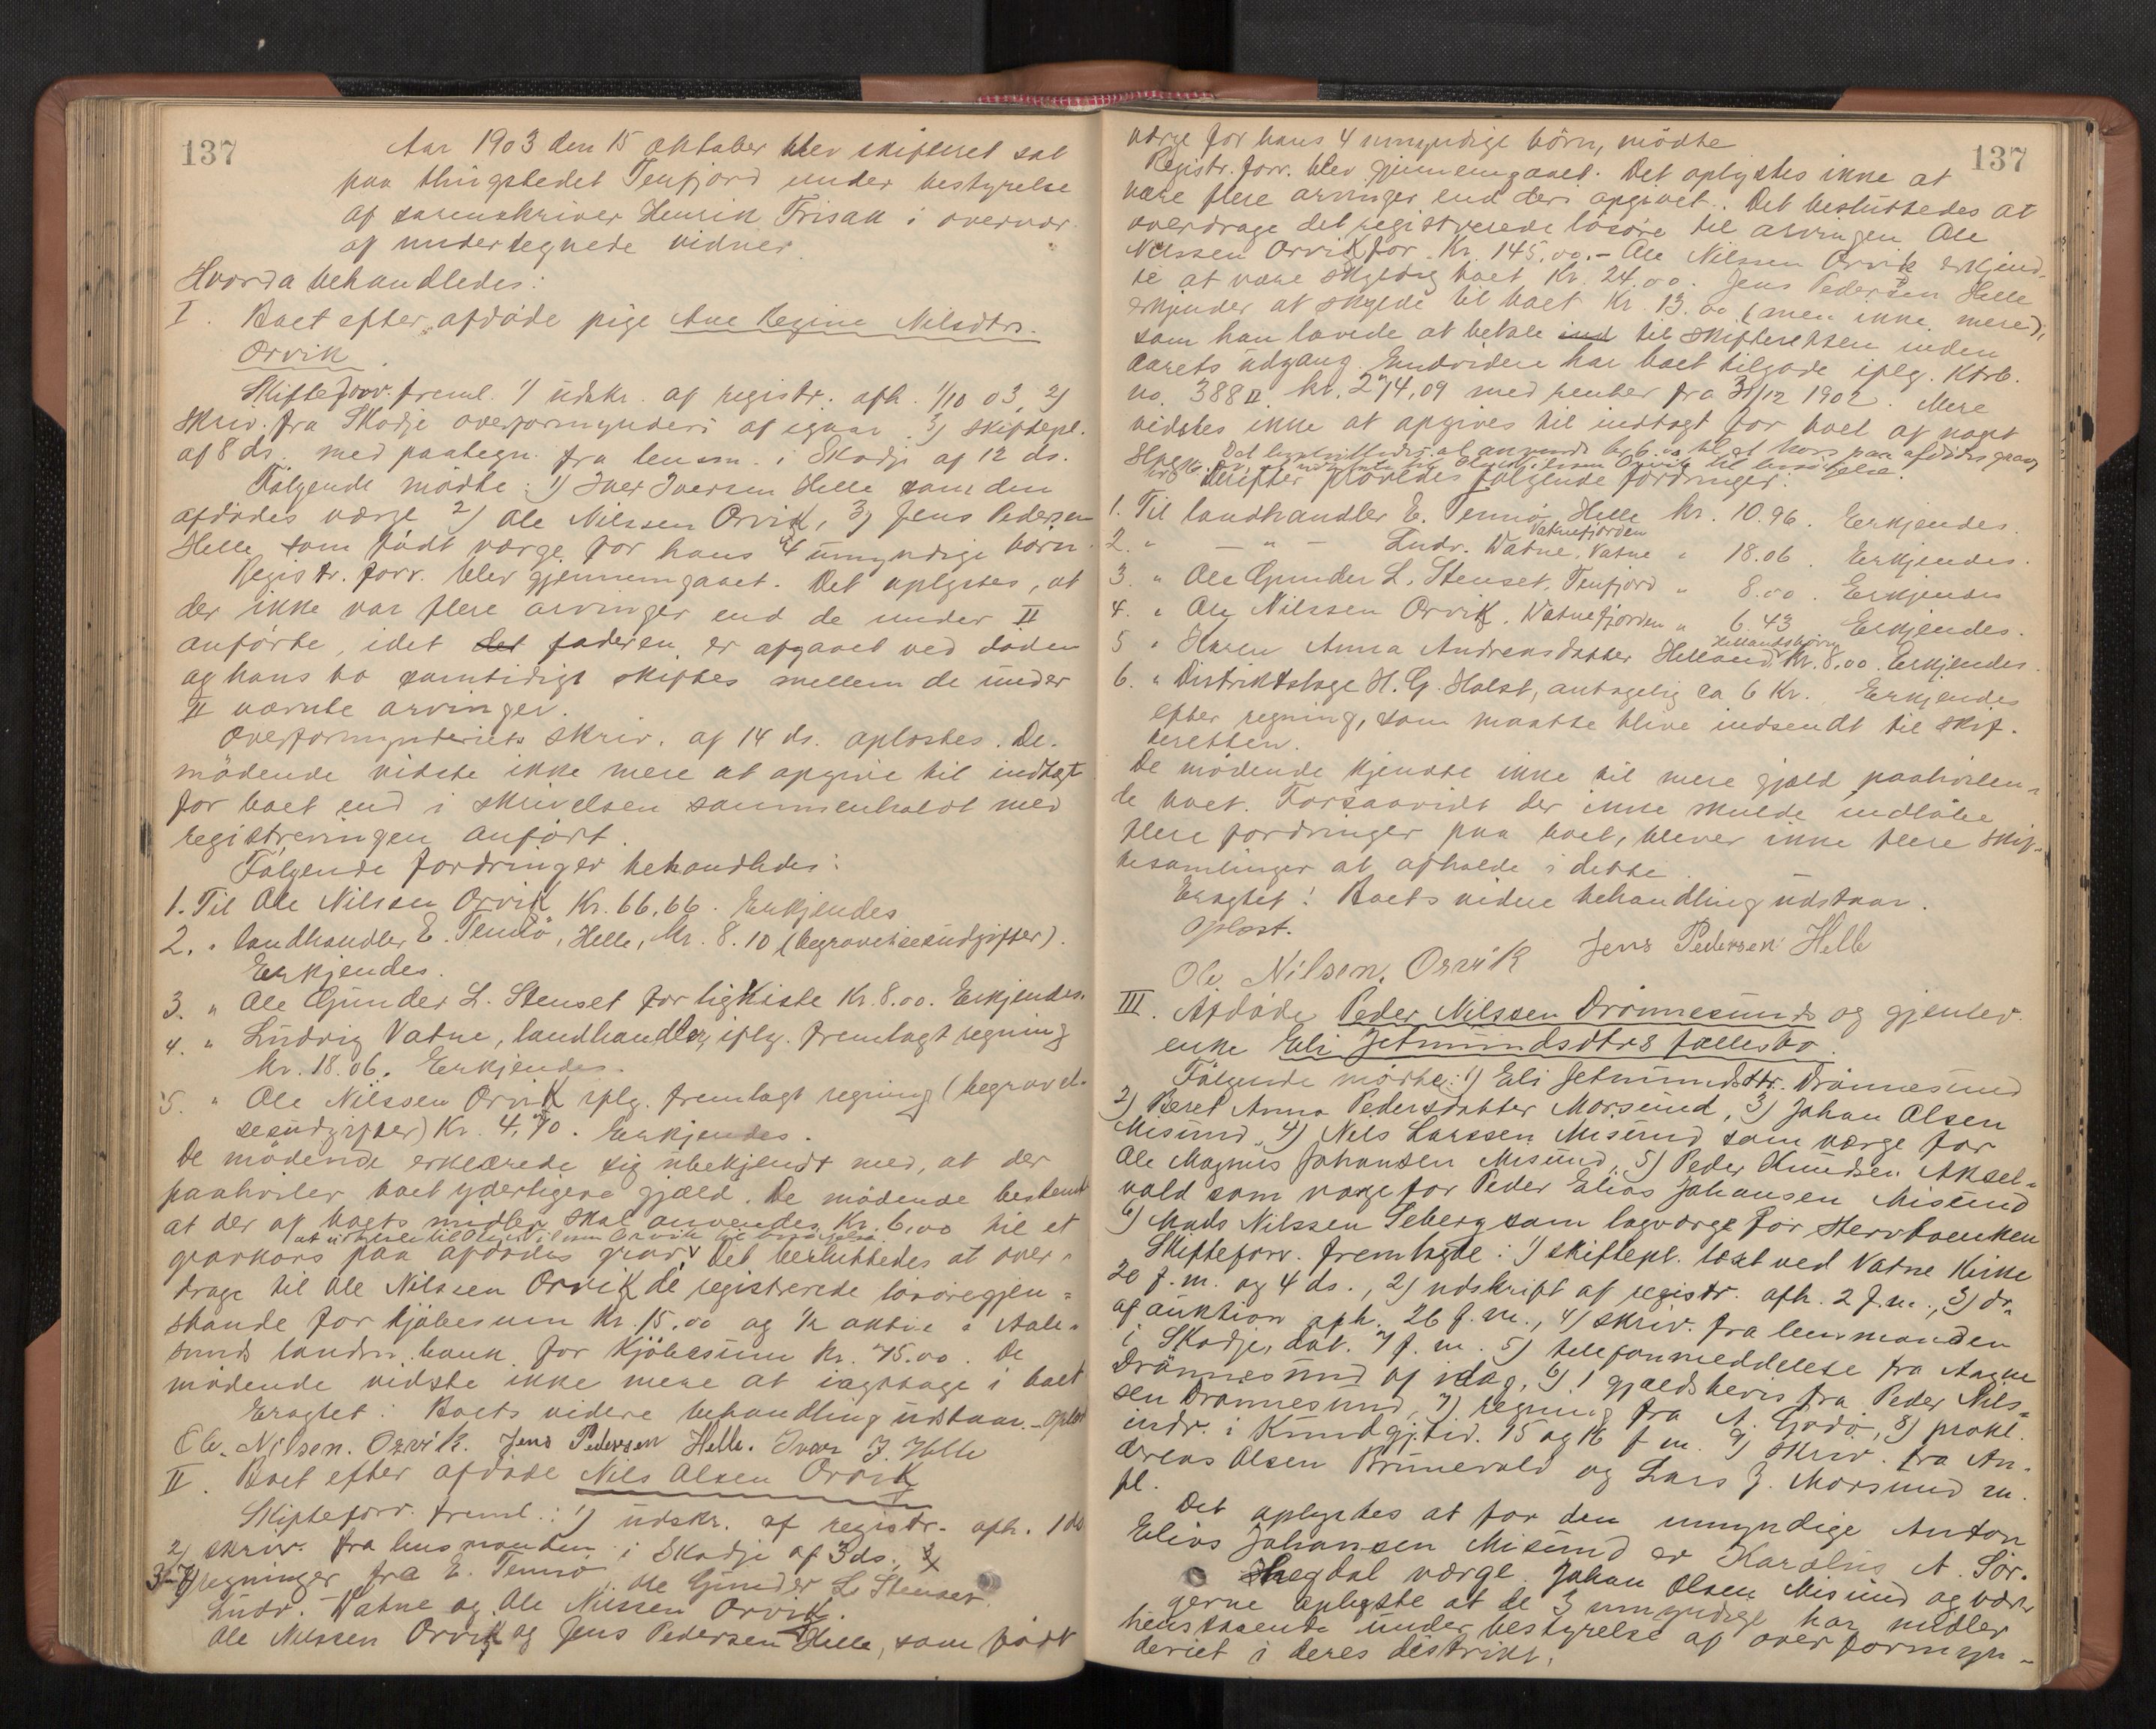 137
Aar 1903 den 15 oktober blev skifteret sat
paa thingstedet Tenfjord under bestyrelse
af sorenskriver Henrik Frisak i overvær
af undertegnede vidner.
Hvorda behandledes:
I. Boet efter afdöde pige Ane Regine Nilsdtr.
Orvik.
Skifteforv. freml. 1) udskr. af registr. afh. 1/10 03, 2)
skriv. fra Skodje overformynderi af igaar. 3) skiftepl.
af 8 ds. med paategn. fra lensm. i Skodje af 12 ds.
Fölgende mödte: 1) Iver Iversen Helle som den
afdödes værge 2) Ole Nilssen Orvik, 3) Jens Pedersen
Helle som födt værge for hans 4 umyndige börn.
Registr. forr. blev gjennemgaaet. Det oplystes, at
der ikke var flere arvinger end de under II
anförte, idet det faderen er afgaaet ved döden
og hans bo samtidigt skiftes mellem de under
II nævnte arvinger.
Overformynderiets skriv. af 14 ds. oplæstes. De
mödende vidste ikke mere at opgive til indtægt
for boet end i skrivelsen sammenholdt med
registreringen anfört.
Fölgende fordringer behandledes:
1. Til Ole Nilssen Orvik Kr. 66.66. Erkjendes
2. " landhandler E. Tennö, Helle, Kr. 8.10 (begravelsesudgifter).
Erkjendes.
3. " Ole Gunder L. Stenset for ligkiste Kr. 8.00. Erkjendes.
4. " Ludvig Vatne, landhandler, iflg. fremlagt regning
kr. 18.06. Erkjendes.
5. " Ole Nilssen Orvik iflg. fremlagt regning (begravel-
sesudgifter) Kr. 4,70. Erkjendes.
De mödende erklærede sig ubekjendt med, at der
paahviler boet yderligere gjæld. De mödende bestemt
at der af boets midler skal anvendes Kr. 6,00 til et
at udbetale til Ole Nilssen Orvik til besörgelse
gravkors paa afdödes grav. Det besluttedes at over-
drage til Ole Nilssen Orvik de registrerede lösöregjen-
stande for kjöbesum Kr. 15.00 og 1/2 aktie i Aale-
sunds landm. bank for kjöbesum kr. 75.00. De
mödende vidste ikke mere at iagttage i boet
Eragtet: Boets videre behandling udstaar. Oplæst
Ole Nilsen. Orvik. Jens Pedersen Helle. Iver J. Helle
II. Boet efter afdöde Nils Olsen Orvik
Skifteforv. freml.: 1) udskr. af registr. afh. 1 ds
2) skriv. fra lensmanden i Skodje af 3 ds.,
3-7) regninger fra E. Tennö, Ole Gunder L. Stenset
Ludv. Vatne og Ole Nilssen Orvik.
Ole Nilssen Orvik og Jens Pedersen Helle, som födt
137
værge for hans 4 umyndige börn, mödte
Registr. forr. blev gjennemgaaet. Det oplystes ikke at
være flere arvinger end deri opgivet. Det besluttedes at
overdrage det registrerede lösöre til arvingen Ole
Nilssen Orvik for Kr. 145.00. - Ole Nilssen Orvik erkjend-
te at være skyldig boet Kr. 24.00. Jens Pedersen Helle
erkjender at skylde til boet Kr. 13.00 (men ikke mere),
som han lovede at betale ind til skifteretten inden
aarets udgang. Endvidere har boet tilgode iflg. Ktrb.
no. 388 II kr. 274,09 med renter fra 31/12 1902. Mere
vidstes ikke at opgives til indtægt for boet af noget
Det besluttedes at anvende kr. 6.00 til et kors paa afdödes grav
at udbetale til Ole Nilssen Orvik til besörgelse.
Derefter prövedes fölgende fordringer:
1. Til landhandler E. Tennö, Helle kr. 10.96. Erkjendes.
Vatnefjorden
2. " - " - Ludv. Watne, Vatne " 18.06. Erkjendes.
3. " Ole Gunder L. Stenset, Tenfjord " 8.00. Erkjendes
4. " Ole Nilssen Orvik, Watnefjorden " 6.43 Erkjendes.
5 " Karen Anna Andreasdatter Helland Kr. 8.00. Erkjendes.
6. " Distriktslæge H. G. Holst, antagelig ca 6 Kr. Erkjendes
efter regning, som maatte blive indsendt til skif-
teretten.
De mödende kjendte ikke til mere gjæld paahvilen-
de boet. Forsaavidt der ikke skulde indlöbe
flere fordringer paa boet, bliver ikke flere skif-
tesamlinger at afholde i dette.
Eragtet: Boets videre behandling udstaar.
Oplæst.
Ole Nilsen. Orvik Jens Pedersen Helle
III. Afdöde Peder Nilssen Drönnesunds og gjenlev.
enke Eli Jetmundsdtrs fællesbo.
Fölgende mödte: 1) Eli Jetmundsdtr. Drönnesund
2) Beret Anna Pedersdatter Morsund, 3) Johan Olsen
Misund, 4) Nils Larssen Misund som værge for
Ole Magnus Johansen Misund, 5) Peder Knudsen Aksel-
vold som værge for Peder Elias Johansen Misund
6) Mads Nilssen Seberg som lagværge for Stervboenken
Skifteforv. fremlagde: 1) skiftepl. læst ved Vatne Kirke
20 f.m. og 4 ds., 2) udskrift af registr. afh. 2 f.m., 3) do.
af auktion afh. 26 f.m., 4) skriv. fra lensmanden
i Skodje, dat. 7 f.m. 5) telefonmeddelelse fra
Drönnesund af idag, 6) 1 gjældsbevis fra Peder Nils-
sen Drönnesund, 7) regning fra A. Godö, 8) prokl.
indr. i Kundgj.tid. 15 og 16 f.m. 9) skriv. fra An-
dreas Olsen Brunevold og Lars J. Morsund m.
fl.
Det oplystes at for den umyndige Anton
Elias Johansen Misund er Karolus A. Sör-
hegdal værge. Johan Olsen Misund og vær-
gerne oplyste at de 3 umyndige har midler
henstaaende under bestyrelse af overformyn-
deriet i deres distrikt.